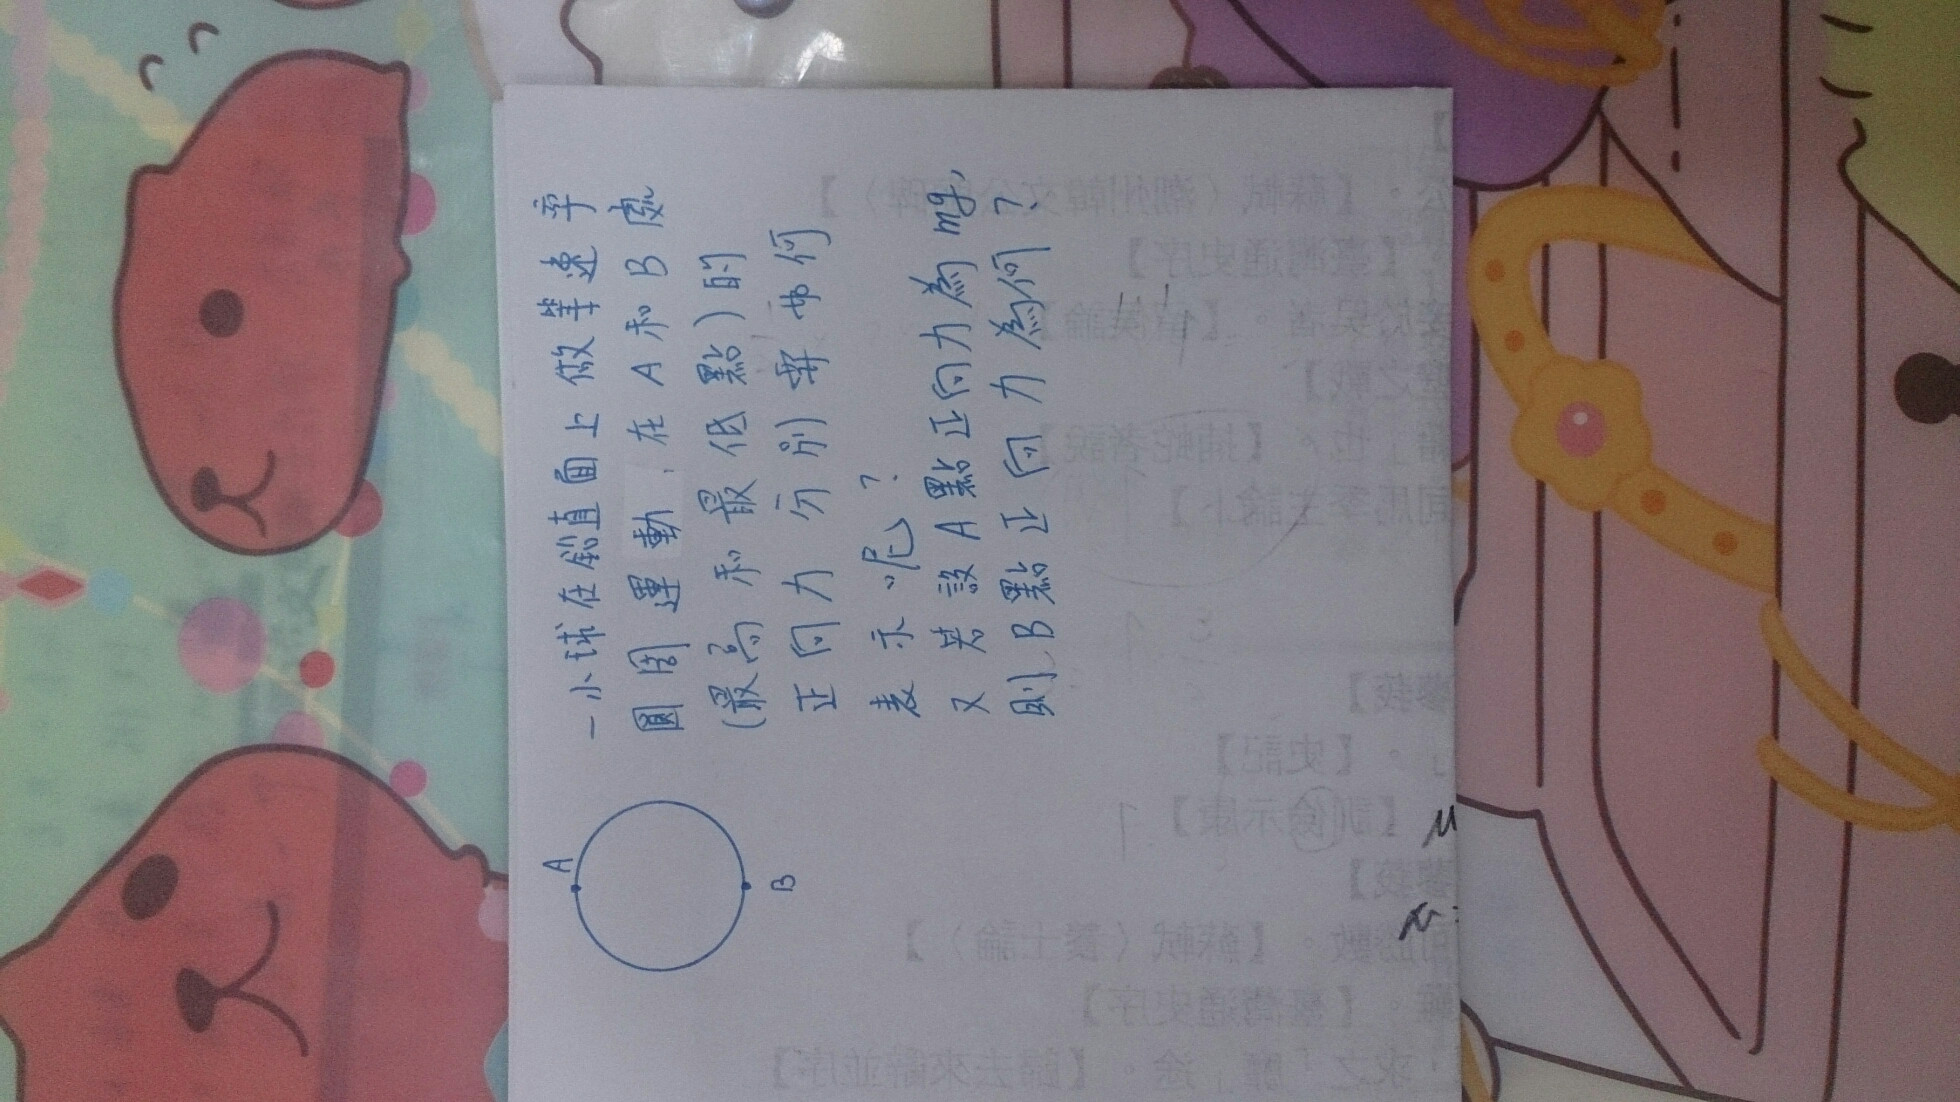 一小球在鉛直面上做等速率
圓周運動,在A和B處
(最高和最低點)的
正向力分別要如何
表示呢?
又若設A點正向力為mg,
則B點正向力為何?
A
B